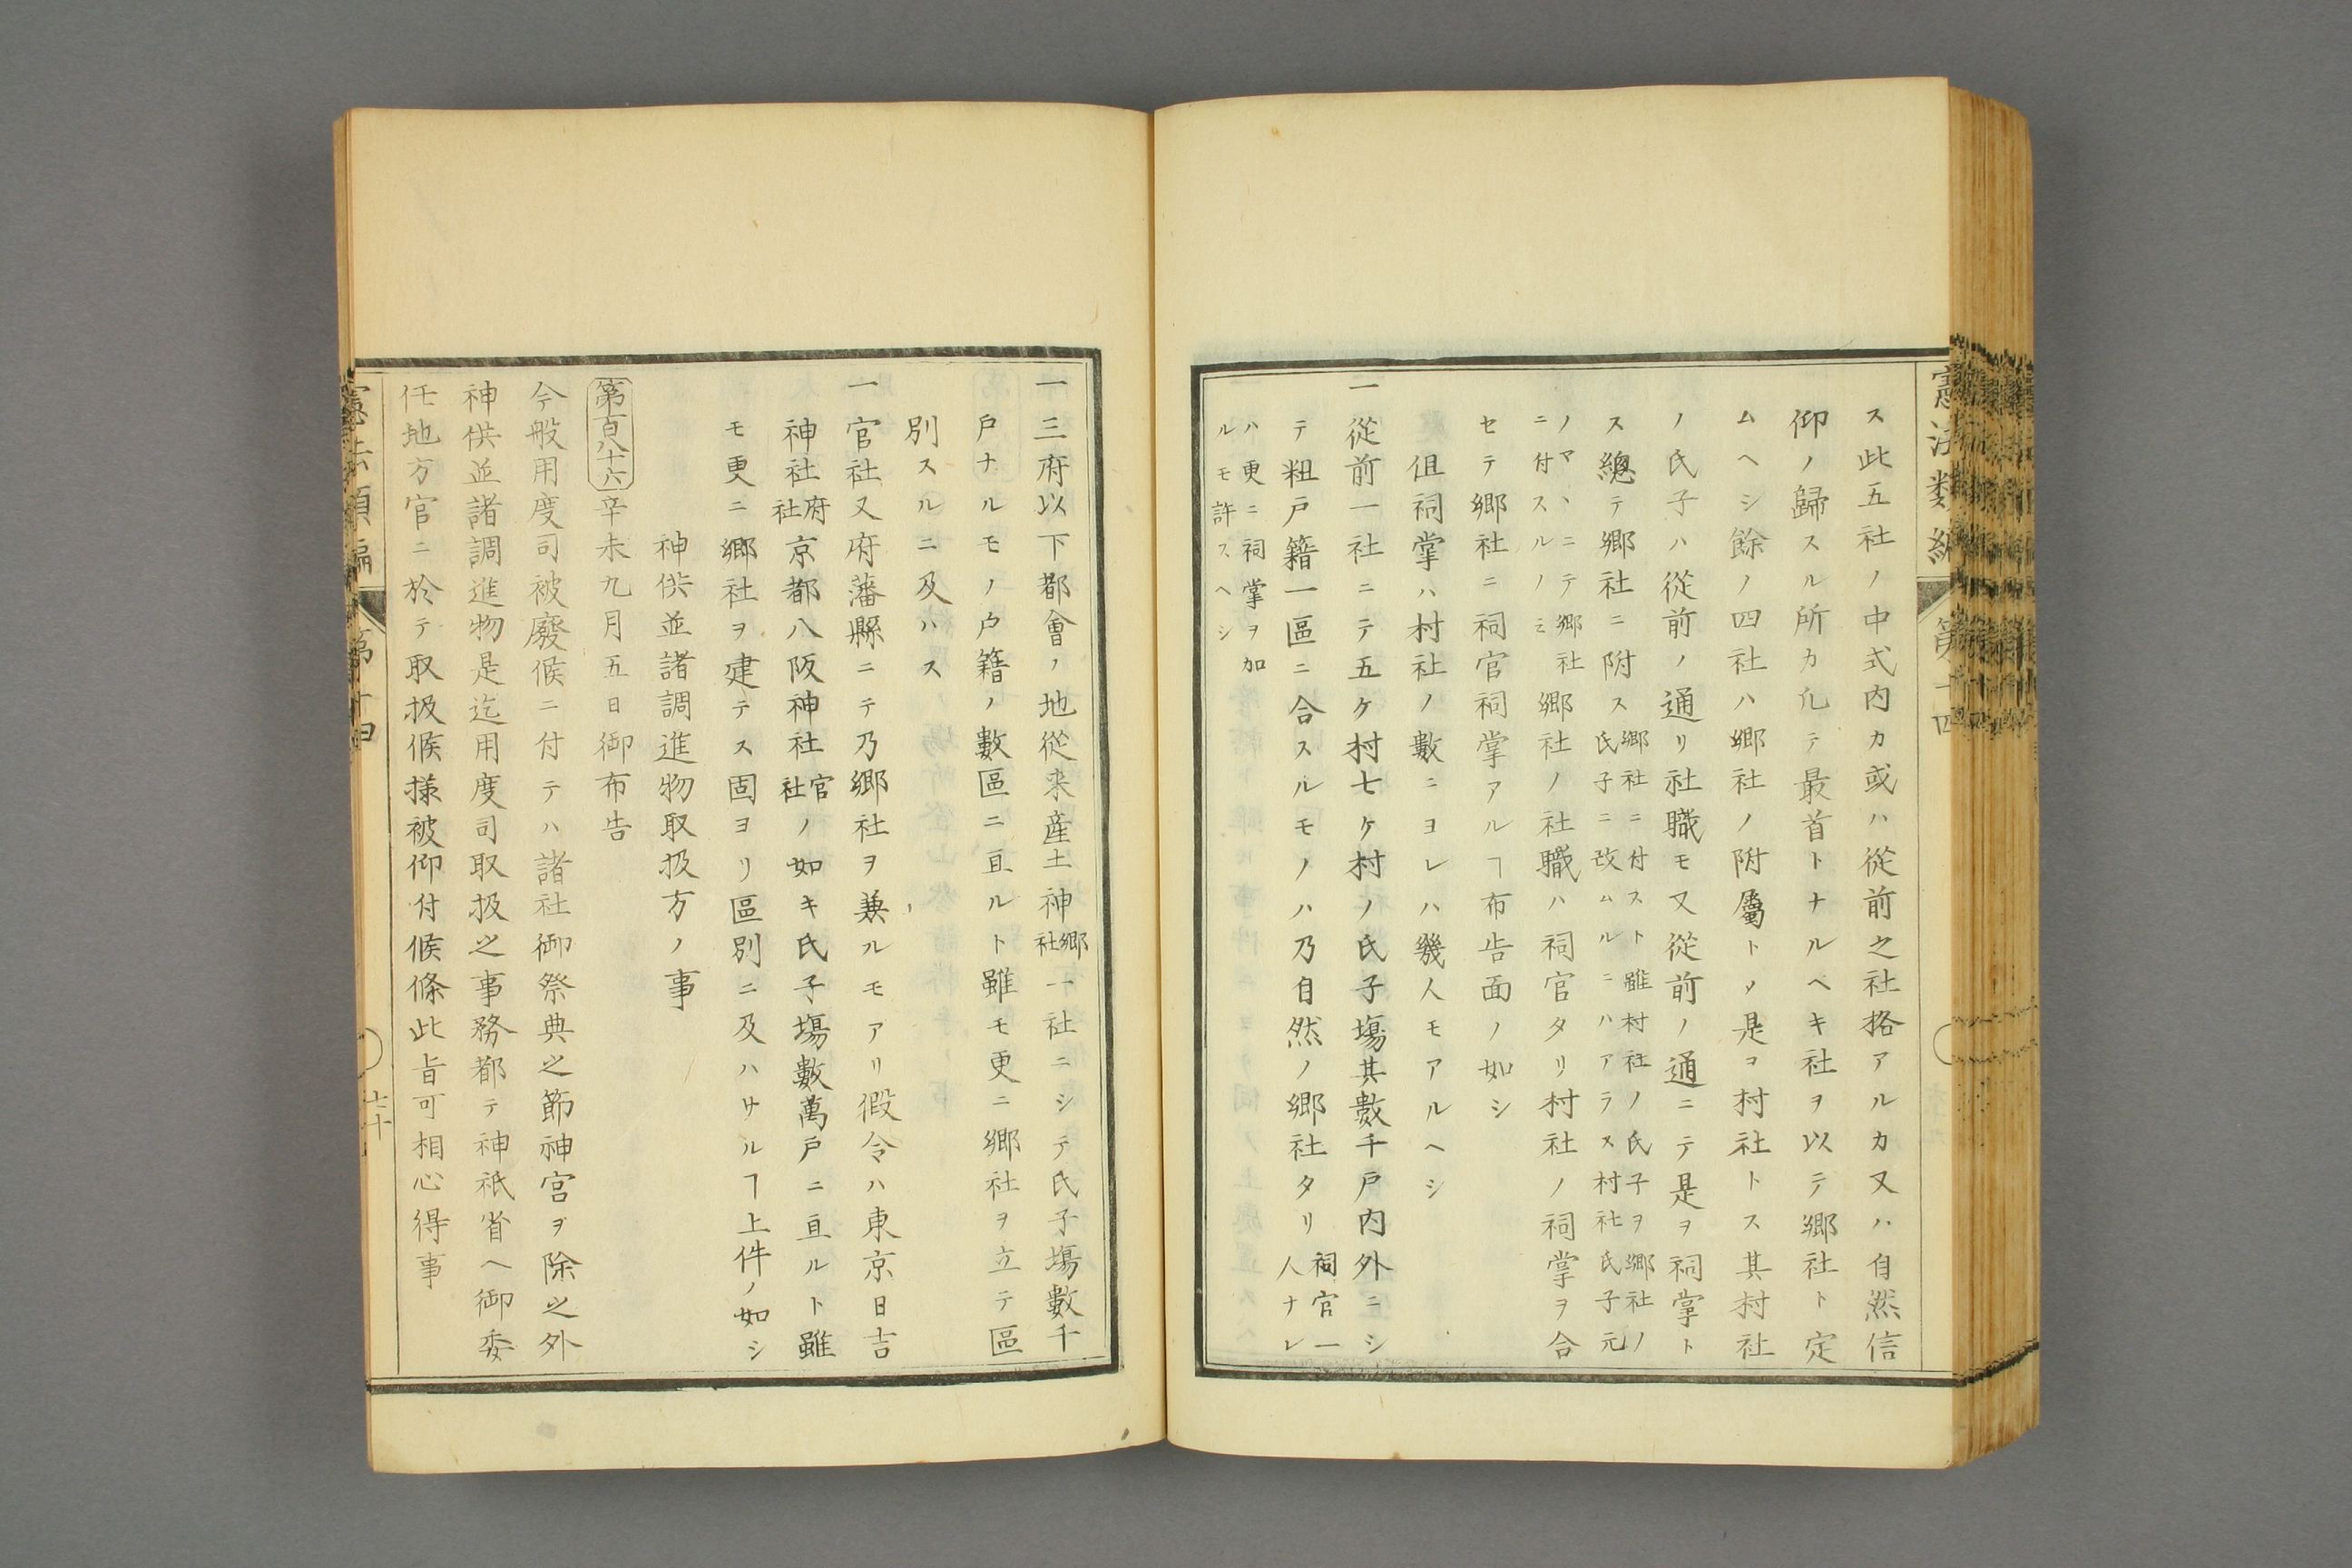 憲法類編 第十四
ス此五社ノ中式内カ或ハ從前之社格アルカ又ハ自然信
仰ノ歸スル所カ凡テ最首トナルヘキ社ヲ以テ郷社ト定
ムヘシ餘ノ四社ハ郷社ノ附屬トメ是ヲ村社トス其村社
ノ氏子ハ從前ノ通リ社職モ又從前ノ通ニテ是ヲ祠掌ト
ス總テ郷社ニ附ス
郷社ニ付スト雖村社ノ氏子ヲ郷社ノ
氏子ニ改ムルニハアラス村社氏子元
ノマヽニテ郷社
ニ付スルノミ
郷社ノ社職ハ祠官タリ村社ノ祠掌ヲ合
セテ郷社ニ祠官祠掌アルヿ布告面ノ如シ
但祠掌ハ村社ノ數ニヨレハ幾人モアルヘシ
一從前一社ニテ五ケ村七ケ村ノ氏子塲其數千戸内外ニシ
テ粗戸籍一區ニ合スルモノハ乃自然ノ郷社タリ
祠官一
人ナレ
ハ更ニ祠掌ヲ加
ルモ許スヘシ
一三府以下都會ノ地從来産土神
郷
社
一社ニシテ氏子塲數千
戸ナルモノ戸籍ノ數區ニ亘ルト雖モ更ニ郷社ヲ立テ區
別スルニ及ハス
一官社又府藩縣ニテ乃郷社ヲ兼ルモアリ假令ハ東京日吉
神社
府
社
京都八阪神社
官
社
ノ如キ氏子塲數萬戸ニ亘ルト雖
モ更ニ郷社ヲ建テス固ヨリ區別ニ及ハサルヿ上件ノ如シ
神供並諸調進物取扱方ノ事
第百八十六 辛未九月五日御布告
今般用度司被廢候ニ付テハ諸社御祭典之節神宮ヲ除之外
神供並諸調進物是迄用度司取扱之事務都テ神祇省ヘ御委
任地方官ニ於テ取扱候様被仰付候條此旨可相心得事
憲法類編 第十四